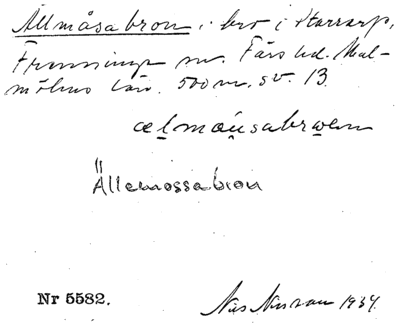 Ällmåsabron, bro i Starrarp,
Frenninge sn. Färs hd. Mal-
möhus län. 500 m. sv. 13
ælmåusabrωen
Ällemossabron
Nr 5582.
Nils 1934.